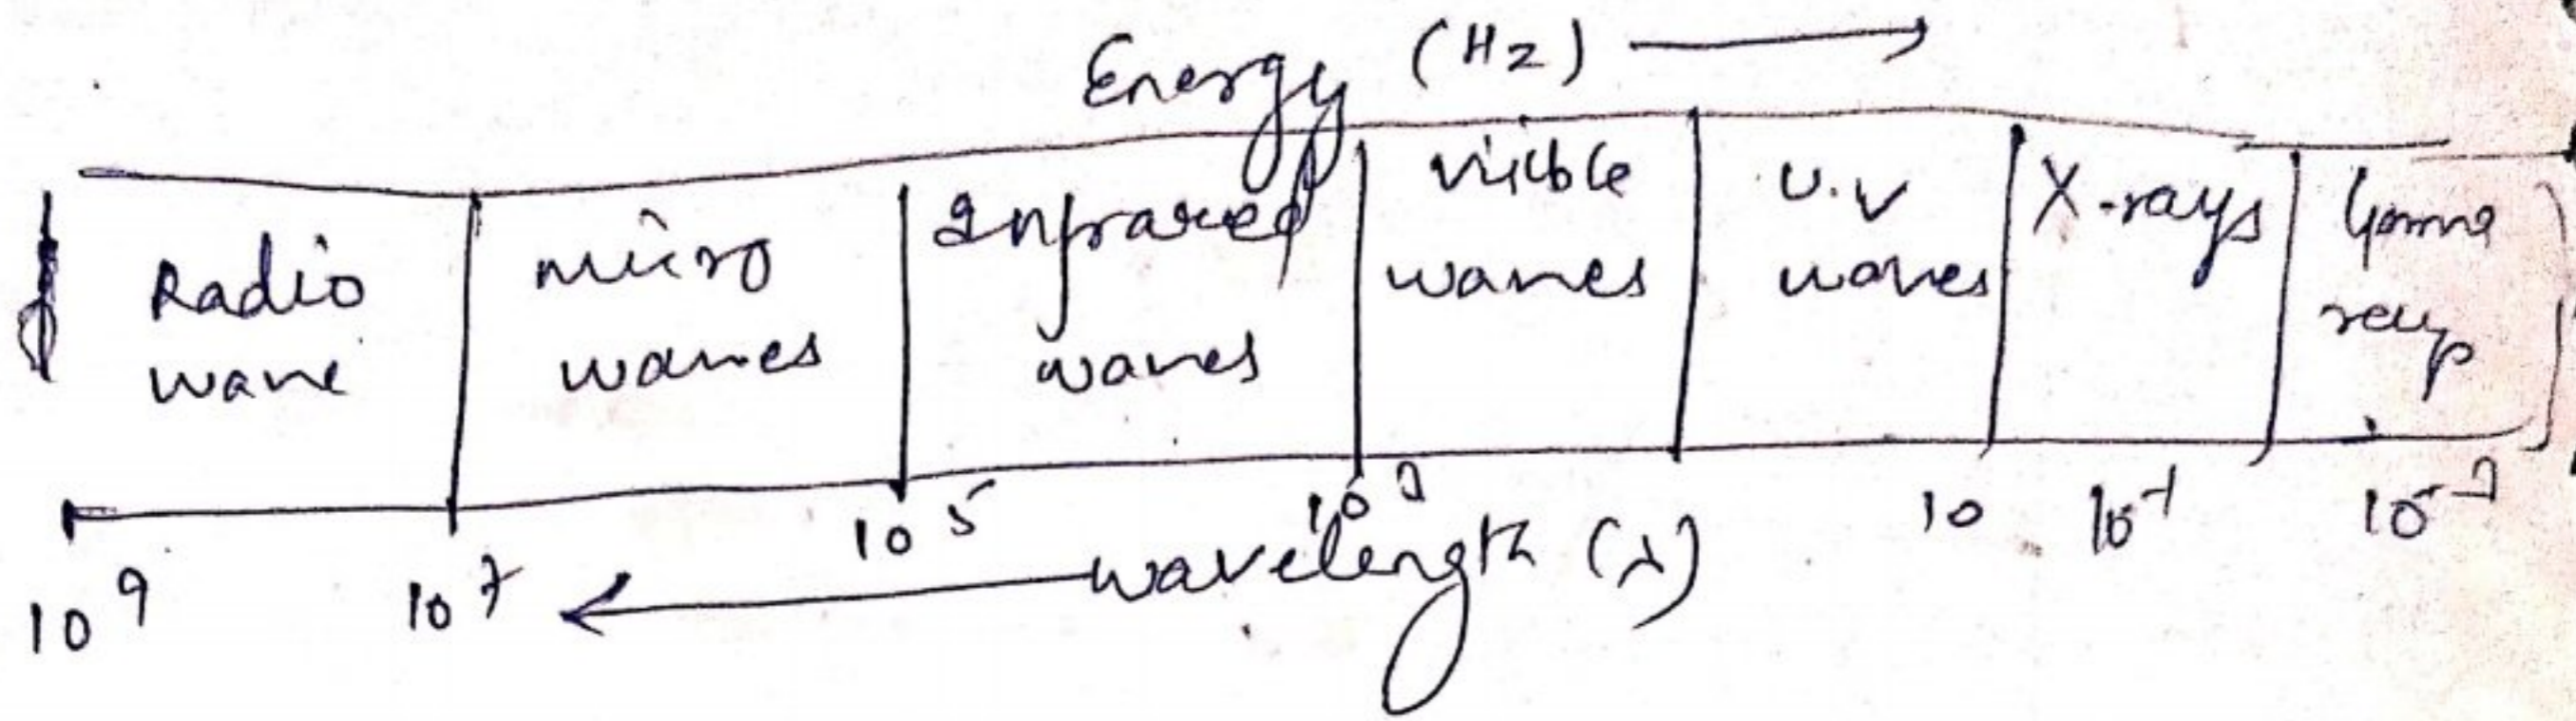 Energy (Hz) →
Radio wave
micro waves
Infrared waves
visible waves
U.V waves
X-rays
Gama rays
10⁹ 10⁷ 10⁵ 10³ 10 10⁻¹ 10⁻³
← wavelength (λ)